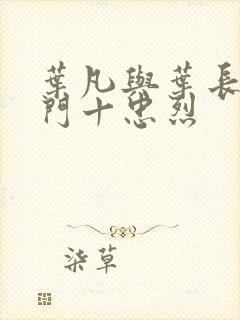 葉凡與葉長
門十忠烈
柒草